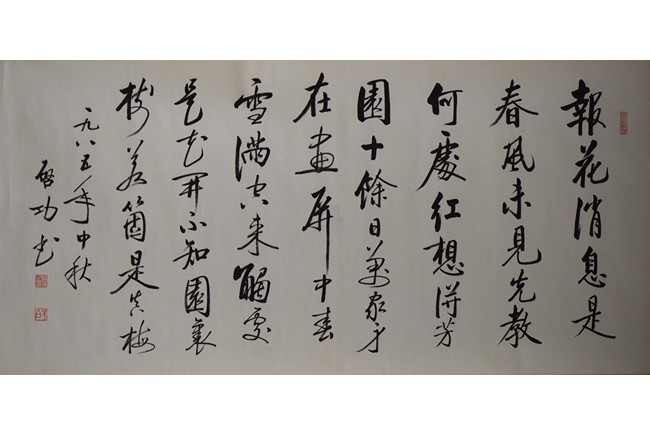 報花消息是
春風未見先教
何處紅想得芳
園十餘日萬家身
在畫屏中春
雪滿空來觸處
是花開不知園裏
樹若箇是真梅
一九八五年中秋
启功書